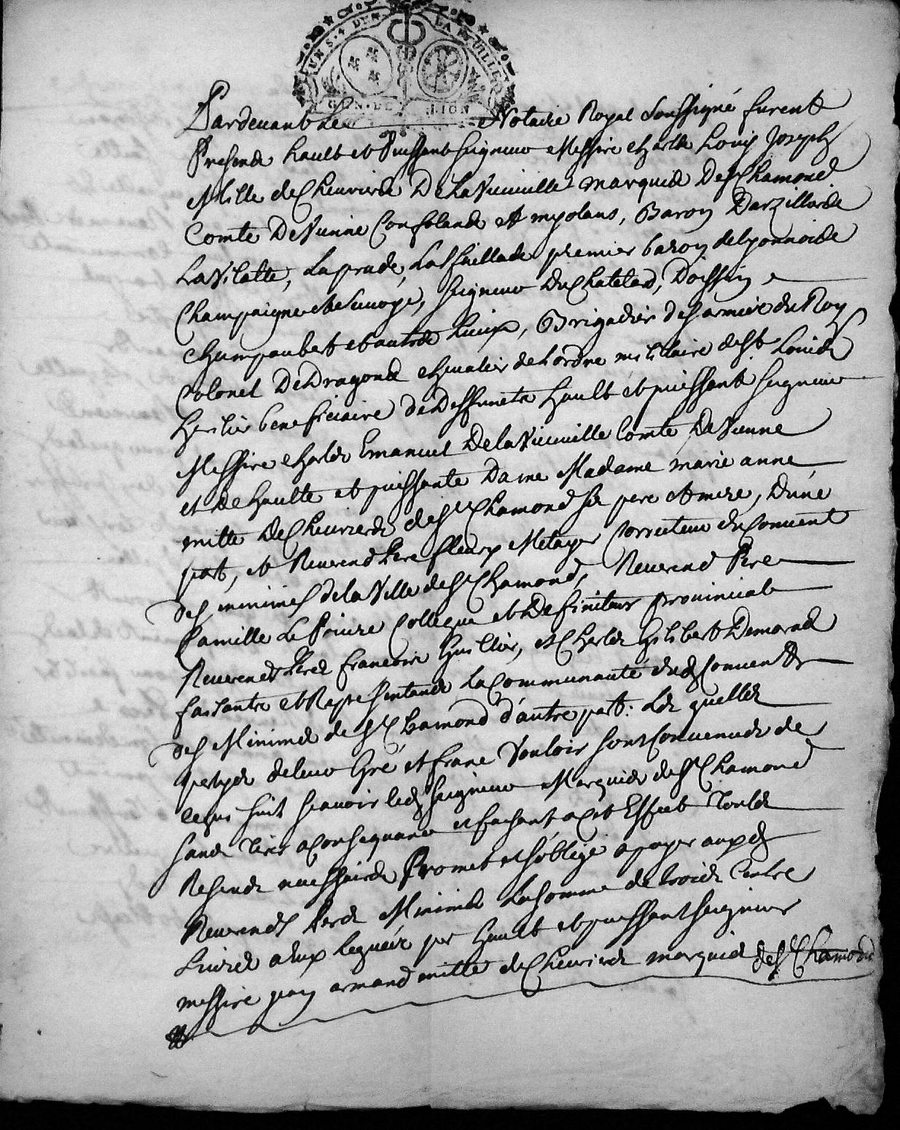 UN S. 4 DEN. LA FEUILLE
GEN. DE LION
Pardevant Le Notaire Royal soussigné furent
Presents hault et Puissant seigneur Messire Charle Louis Joseph
Mille de Cheurierde De La Vieuville marquis De St Chamond
Comte De Vienne Confoland et myolans, Baron Darzilliere
La Vilatte, La prade, La fueillade premier baron de Lyonnoide
Champaigne seigneur Du Chatelad, Doissin
Champaubert et autrde Lieux, Brigadier des armée du Roy
Colonel De Dragond chevalier de Lordre militaire de St Louis
Heritier beneficiaire de Deffuncts hault et puissant seigneur
Messire charlde Emanuel De la Vieuville Comte De Vienne
et De haulte et puissante Dame Madame marie anne
mitte De Cheurierde de St Chamond ses pere et mere, Dune
part, et Reverend Pere fleury Metayer Correcteur du Couvent
des minimes de la Ville de St Chamond, Reverend Pere
Camille Le Poivre Collegue et Definiteur provincial
Reverends Peres francois et Charlde Gilibert Demorand
faisants et Representands La Communauté dud Couvent
des Minimes de St Chamond d'autre part: Les quelles
partyes de leur Gré et franc Vouloir sont Convenues de
ce qui suit sçavoir led seigneur Marquis de St Chamond
sans tirer a Consequance et faisant a cet Effect Toutes
Reserves necessairde Promet et soblige a payer auxd
Reverends Peres Minimes La somme de troids Centrs
Livres a Eux leguée par hault et puissant seigneur
messire jean armand mitte de Cheurierde marquis de St Chamond